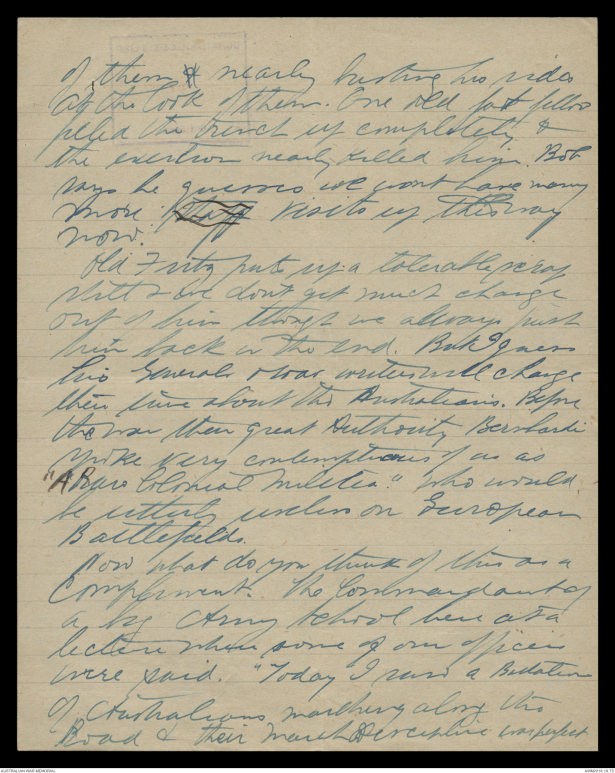 of them & nearly busting his sides
at the look of them. One old fat fellow
filled the trench up completely &
the exertion nearly killed him. Bob
says he guesses we wont have many
more visits up this way
now.
Old Fritz puts up a tolerable scrap
still & we don't get much change
out of him though we always push
him back in the end. But I guess
his Generals & war writers will change
their tune about the Australians. Before
the war their great Authority Bernhardi
spoke very contemptuous of us as
"A Colonial Militia." who would
be utterly useless on European
Battlefields.
Now what do you think of this as a
Compliment. The Commandant of
a big Army School here at a
lecture where some of our officers
were said. "Today I saw a Battalion
of Australians marching along the
Road & their March Discipline was perfect
AUSTRALIAN WAR MEMORIAL